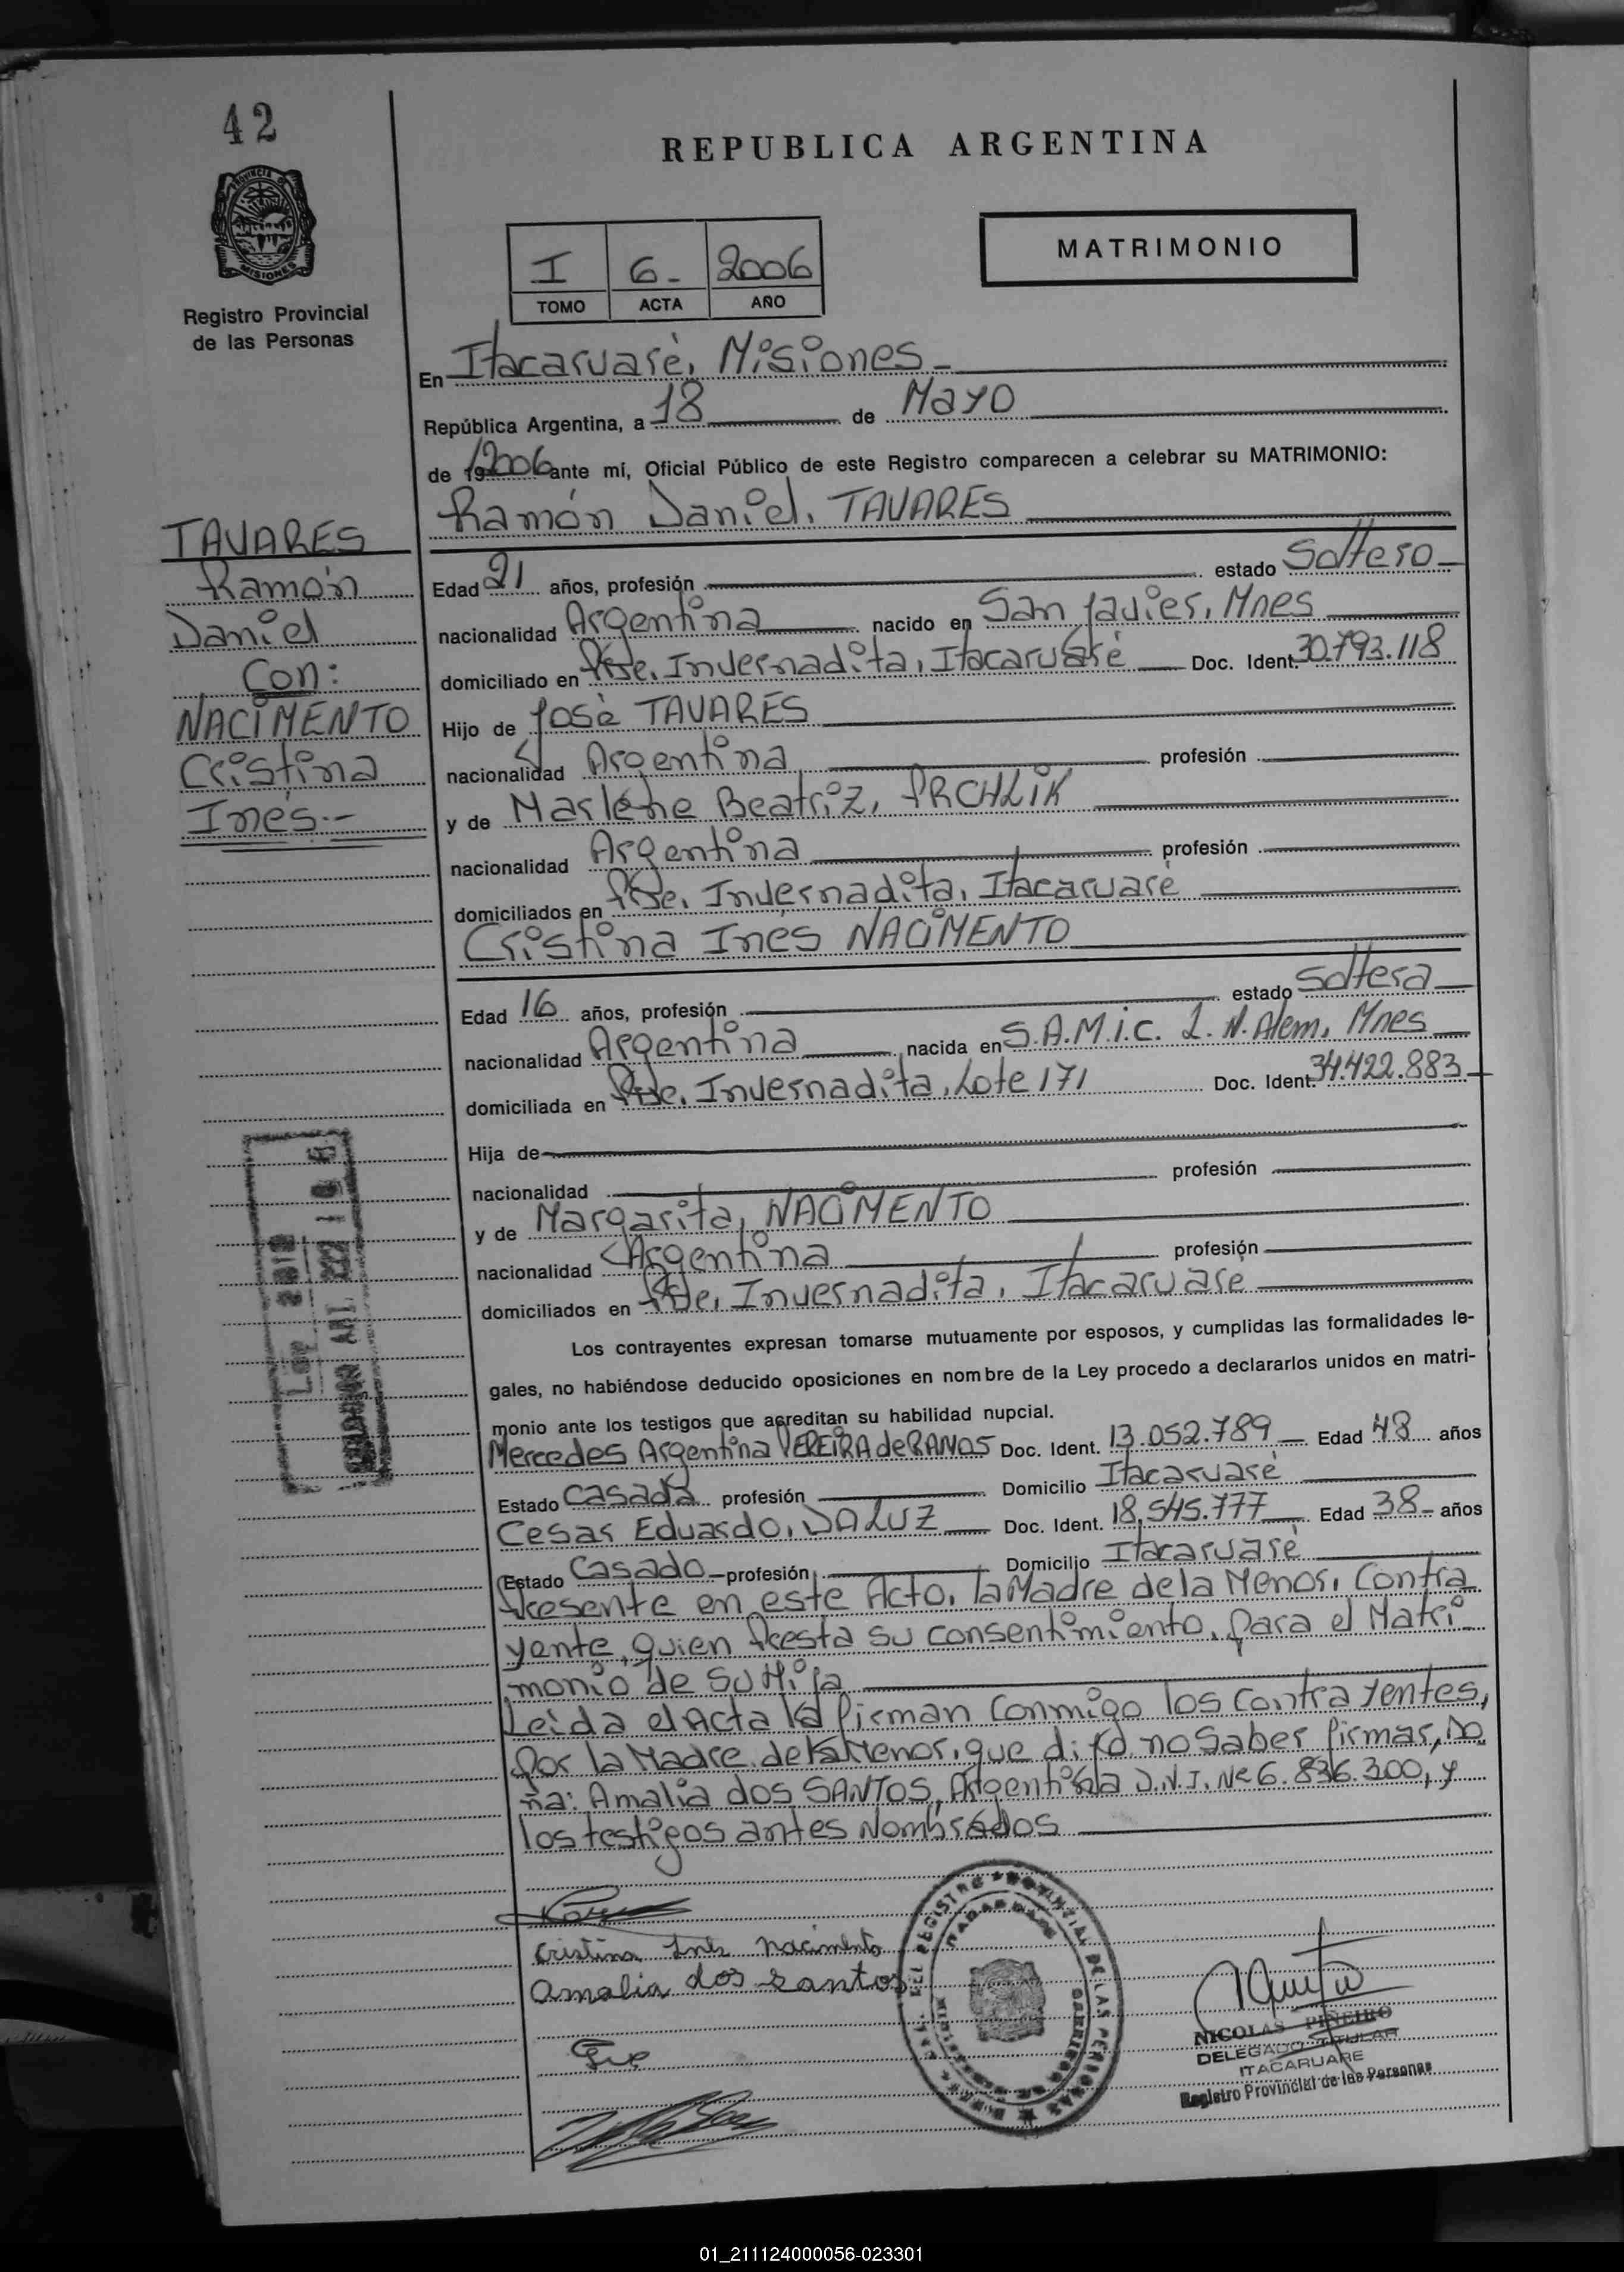 42
REPUBLICA ARGENTINA
PROVINCIA DE
MISIONES
Registro Provincial
de las Personas
I 6- 2006
TOMO ACTA AÑO
MATRIMONIO
En Itacaruaré, Misiones
República Argentina, a 18 de Mayo
de 2006 ante mí, Oficial Público de este Registro comparecen a celebrar su MATRIMONIO:
Ramón Daniel, TAVARES
TAVARES
Ramón
Daniel
Con:
NACIMENTO
Cristina
Inés.-
Edad 21 años, profesión estado Soltero
nacionalidad Argentina nacido en San Javier, Mnes
domiciliado en Pje. Invernadita, Itacaruaré Doc. Ident. 30.793.118
Hijo de José TAVARES
nacionalidad Argentina profesión
y de Marlene Beatriz, PRCHLIK
nacionalidad Argentina profesión
domiciliados en Pje. Invernadita, Itacaruaré
Cristina Inés NACIMENTO
Edad 16 años, profesión estado Soltera
nacionalidad Argentina nacida en S.A.M.i.c. L.N. Alem, Mnes
domiciliada en Pje. Invernadita, Lote 171 Doc. Ident. 34.422.883
Hija de
nacionalidad profesión
y de Margarita, NACIMENTO
nacionalidad Argentina profesión
domiciliados en Pje, Invernadita, Itacaruaré
Los contrayentes expresan tomarse mutuamente por esposos, y cumplidas las formalidades le-
gales, no habiéndose deducido oposiciones en nombre de la Ley procedo a declararlos unidos en matri-
monio ante los testigos que acreditan su habilidad nupcial.
Mercedes Argentina PEREIRA de RAMOS Doc. Ident. 13.052.789 Edad 48 años
Estado Casada profesión Domicilio Itacaruaré
Cesar Eduardo, DA LUZ Doc. Ident. 18.545.777 Edad 38 años
Estado Casado profesión Domicilio Itacaruaré
Presente en este Acto, la Madre de la Menor, Contra
yente, quien Presta su consentimiento, para el Matri
monio de su Hija
Leida el Acta la firman Conmigo los Contrayentes,
por la Madre de la Menor, que dijo no Saber firmar, Do
ña: Amalia dos SANTOS, Argentina D.N.I. Nº 6.836.300, y
los testigos antes Nombrados
Cristina Inés Nacimento
Amalia dos santos
NICOLAS PIÑEIRO
DELEGADO TITULAR
ITACARUARE
Registro Provincial de las Personas
01_211124000056-023301